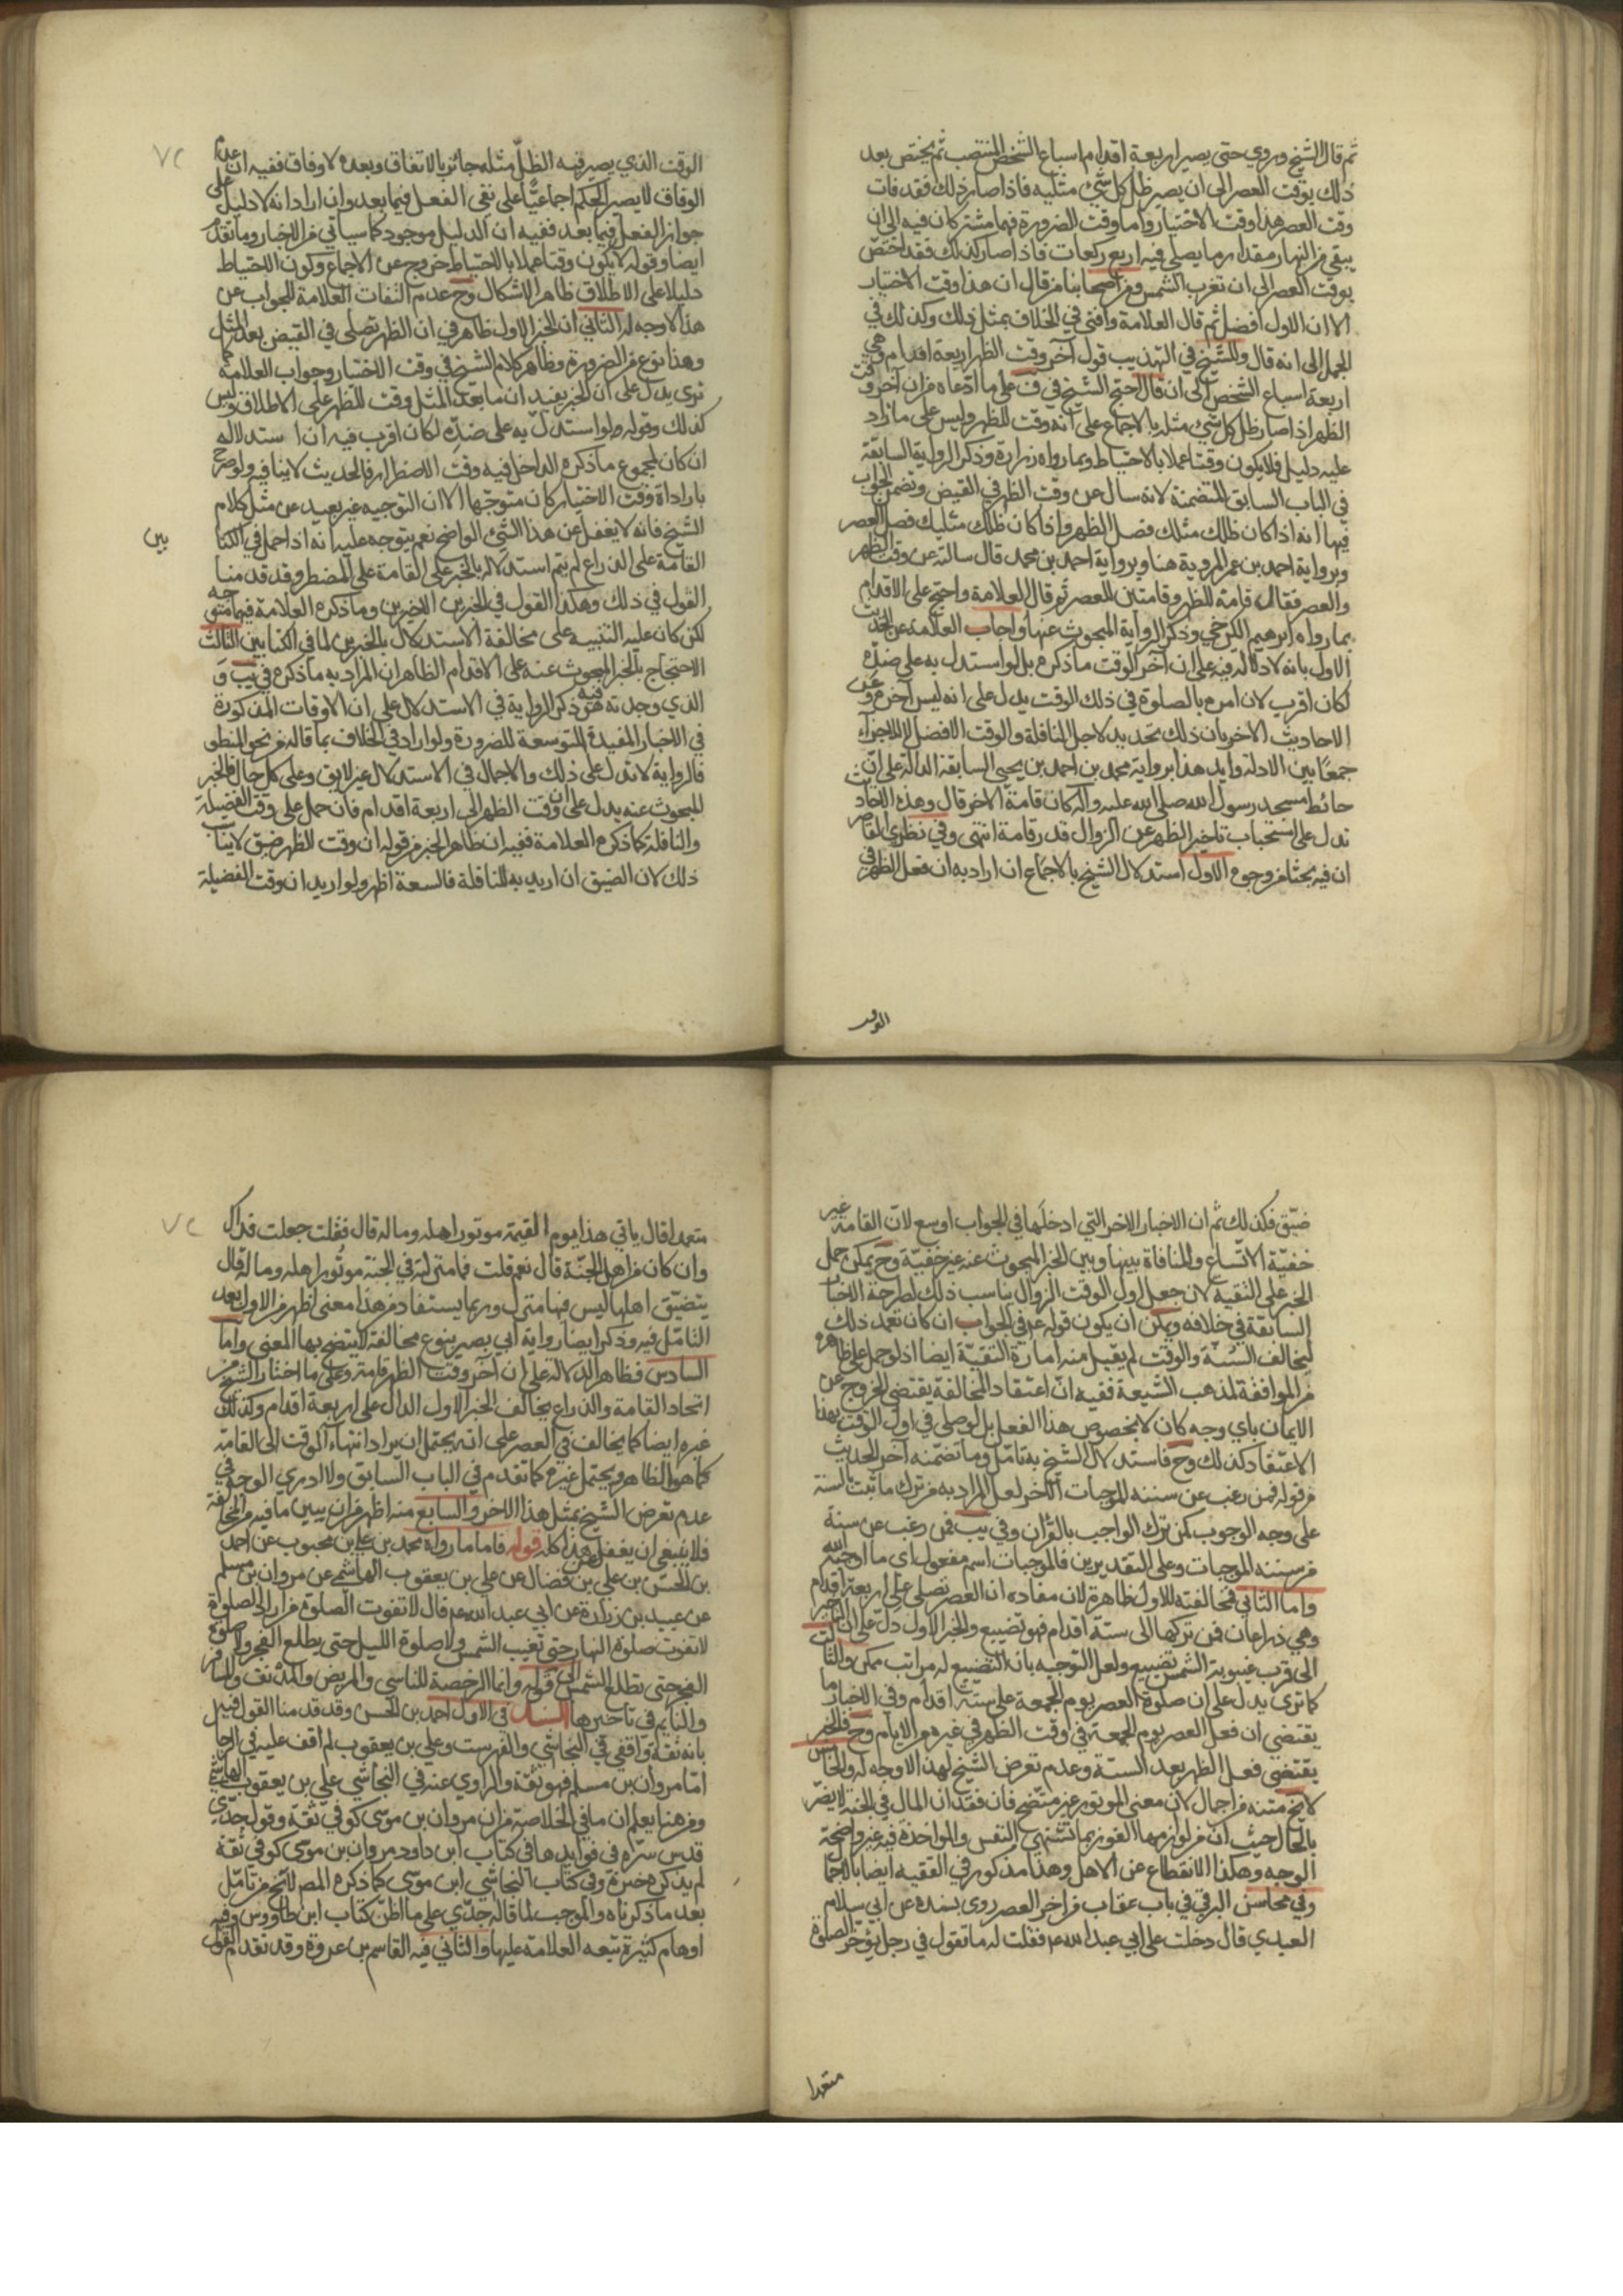 ثم قال الشيخ وروي حتى يصير اربعة اقدام اسباع الشخص المنتصب ثم يختص بعد
ذلك بوقت العصر الى ان يصير ظل كل شئ مثليه فاذا صار ذلك فقد فات
وقت العصر هذا وقت الاختيار واما وقت الضرورة فهما مشتركان فيه الى ان
يبقى من النهار مقدار ما يصلى فيه اربع ركعات فاذا صار كذلك فقد اختص
بوقت العصر الى ان تغرب الشمس ومن اصحابنا من قال ان هذا وقت الاختيار
الا ان الاول افضل ثم قال العلامة وافتى في الخلاف بمثل ذلك وكذلك في
الجمل الى انه قال وللشيخ في التهذيب قول آخر وقت الظهر اربعة اقدام وهي
اربعة اسباع الشخص الى ان قال احتج الشيخ في ف على ما ادعاه من ان آخر وقت
الظهر اذا صار ظل كل شئ مثله بالاجماع على انه وقت للظهر وليس على ما زاد
عليه دليل فلا يكون وقتا عملا بالاحتياط وبما رواه زرارة وذكر الرواية السابقة
في الباب السابق المتضمنة لانه سال عن وقت الظهر في القيض وتضمن الجواب
فيها انه اذا كان ظلك مثلك فصل الظهر واذا كان ظلك مثليك فصل العصر
وبرواية احمد بن عمر المروية هنا وبرواية احمد بن محمد قال سالته عن وقت الظهر
والعصر فقال قامة للظهر وقامتين للعصر ثم قال العلامة واحتج على الاقدام
بما رواه ابرهيم الكرخي وذكر الرواية المبحوث عنها واجاب العلامة عن الحديث
الاول بانه لا دلالة فيه على ان آخر الوقت ما ذكره بل لو استدل به على ضده
لكان اقرب لان امره بالصلوة في ذلك الوقت يدل على انه ليس آخره وعن
الاحاديث الاخر بان ذلك تحديد لاجل النافلة والوقت الافضل لا للاجزاء
جمعا بين الادلة وايد هذا برواية محمد بن احمد بن يحيى السابقة الدالة على ان
حائط مسجد رسول الله صلى الله عليه وآله كان قامة الاخر قال وهذه الاحاديث
تدل على استحباب تاخير الظهر عن الزوال قدر قامة انتهى وفي نظري القاصر
ان فيه بحثا من وجوه الاول استدلال الشيخ بالاجماع ان اراد به ان فعل الظهر في
الوقت
الوقت الذي يصير فيه الظل مثله جائز بالاتفاق وبعده لا وفاق ففيه ان عدم
الوفاق لا يصير الحكم اجماعيا على نفي الفعل فيما بعد وان اراد انه لا دليل على
جواز الفعل فيما بعد ففيه ان الدليل موجود كما سياتي من الاخبار وما تقدم
ايضا وقوله لا يكون وقتا عملا بالاحتياط خروج عن الاجماع وكون الاحتياط
دليلا على الاطلاق ظاهر الاشكال وح عدم التفات العلامة للجواب عن
هذا لا وجه له الثاني ان الخبر الاول ظاهر في ان الظهر تصلى في القيض بعد المثل
وهذا نوع من الضرورة وظاهر كلام الشيخ في وقت الاختيار وجواب العلامة كما
ترى يدل على ان الخبر يفيد ان ما بعد المثل وقت للظهر على الاطلاق وليس
كذلك وقوله ولو استدل به على ضده لكان اقرب فيه ان استدلاله
ان كان لمجموع ما ذكره الداخل فيه وقت الاضطرار فالحديث لا ينافيه ولو صرح
بارادة وقت الاختيار كان متوجها الا ان التوجيه غير بعيد عن مثل كلام
الشيخ فانه لا يغفل عن هذا الشئ الواضح نعم يتوجه عليه انه اذا حمل في الكتابين
القامة على الذراع لم يتم استدلاله بالخبر على القامة على المضطر وقد قدمنا
القول في ذلك وهكذا القول في الخبرين الاخيرين وما ذكره العلامة فيهما متوجه
لكن كان عليه التنبيه على مخالفة الاستدلال بالخبرين لما في الكتابين الثالث
الاحتجاج بالخبر المبحوث عنه على الاقدام الظاهر ان المراد به ما ذكره في يب و
الذي وجدته فيه هو ذكر الرواية في الاستدلال على ان الاوقات المذكورة
في الاخبار المفيدة للتوسعة للضرورة ولو اراد في الخلاف بما قاله من نحو المنطوق
فالرواية لا تدل على ذلك والاجمال في الاستدلال غير لايق وعلى كل حال فالخبر
المبحوث عنه يدل على ان وقت الظهر الى اربعة اقدام فان حمل على وقت الفضيلة
والنافلة كما ذكره العلامة ففيه ان ظاهر الخبر من قوله ان وقت للظهر ضيق لا يناسب
ذلك لان الضيق ان اريد به للنافلة فالسعة اظهر ولو اريد ان وقت الفضيلة
ضيق فكذلك ثم ان الاخبار الاخر التي ادخلها في الجواب اوسع لان القامة غير
خفية الاتساع والمنافاة بينها وبين الخبر المبحوث عنه غير خفية وح يمكن حمل
الخبر على التقية لان جعل اول الوقت الزوال يناسب ذلك لصراحة الاخبار
السابقة في خلافه ويمكن ان يكون قوله عم في الجواب ان كان تعمد ذلك
ليخالف السنة والوقت لم يقبل منه امارة التقية ايضا اذ لو حمل على ظاهره
من الموافقة لمذهب الشيعة ففيه ان اعتقاد المخالفة يقتضي الخروج عن
الايمان باي وجه كان لا بخصوص هذا الفعل بل لو صلى في اول الوقت بهذا
الاعتقاد كذلك وح فاستدلال الشيخ به تامل وما تضمنه آخر الحديث
من قوله فمن رغب عن سننه الموجبات الخ لعل المراد به من ترك ما ثبت بالسنة
على وجه الوجوب كمن ترك الواجب بالقرآن وفي يب فمن رغب عن سنة
من سننه الموجبات وعلى التقديرين فالموجبات اسم مفعول اي ما اوجبه الله
واما الثاني فمخالفته للاول ظاهرة لان مفاده ان العصر تصلى على اربعة اقدام
وهي ذراعان فمن تركها الى ستة اقدام فهو تضييع والخبر الاول دل على ان التاخير
الى قرب غيبوبة الشمس تضييع ولعل التوجيه بان التضييع له مراتب ممكن والثالث
كما ترى يدل على ان صلوة العصر يوم الجمعة على ستة اقدام وفي الاخبار ما
يقتضي ان فعل العصر يوم الجمعة في وقت الظهر في غيره من الايام وح فالخبر
يقتضي فعل الظهر بعد الستة وعدم تعرض الشيخ لهذا لا وجه له والخامس
لا يخ متنه من اجمال لان معنى الموتور غير متضح فان فقدان المال في الجنة لا يضر
بالحال حيث ان من لوازمها الفوز بما تشتهي النفس والمواخذة فيه غير واضحة
الوجه وهكذا الانقطاع عن الاهل وهذا مذكور في الفقيه ايضا بالاجمال
وفي محاسن البرقي في باب عقاب من اخر العصر روى بسنده عن ابي سلام
العبدي قال دخلت على ابي عبد الله عم فقلت له ما تقول في رجل يؤخر الصلوة
متعمدا
متعمدا قال ياتي هذا يوم القيمة موتورا اهله وماله قال فقلت جعلت فداك
وان كان من اهل الجنة قال نعم قلت فما منزلته في الجنة موتورا اهله وماله قال
يتضيق اهلها ليس فيها منزل وربما يستفاد من هذا معنى اظهر من الاول بعد
التامل فيه وذكر ايضا رواية ابي بصير بنوع مخالفة لا يتضح بها المعنى واما
السادس فظاهر الدلالة على ان آخر وقت الظهر قامة وعلى ما اختار الشيخ من
اتحاد القامة والذراع يخالف الخبر الاول الدال على اربعة اقدام وكذلك
غيره ايضا كما يخالف في العصر على انه يحتمل ان يراد انتهاء الوقت الى القامة
كما هو الظاهر ويحتمل غيره كما تقدم في الباب السابق ولا ادري الوجه في
عدم تعرض الشيخ بمثل هذا الاخر والسابع منه اظهر من ان يبين ما فيه من المخالفة
فلا ينبغي ان يغفل عن هذا كله قوله فاما ما رواه محمد بن علي بن محبوب عن احمد
بن الحسن بن علي بن فضال عن علي بن يعقوب الهاشمي عن مروان بن مسلم
عن عبيد بن زرارة عن ابي عبد الله عم قال لا تفوت الصلوة من اراد الصلوة
لا تفوت صلوة النهار حتى تغيب الشمس ولا صلوة الليل حتى يطلع الفجر ولا صلوة
الفجر حتى تطلع الشمس الى قوله وانما الرخصة للناسي والمريض والمدنف والمسافر
والنايم في تاخيرها السند في الاول احمد بن الحسن وقد قدمنا القول فيه
بانه ثقة واقفي في النجاشي والفهرست وعلي بن يعقوب لم اقف عليه في الرجال
اما مروان بن مسلم فهو ثقة والراوي عنه في النجاشي علي بن يعقوب الهاشمي
ومن هنا يعلم ان ما في الخلاصة من ان مروان بن موسى كوفي ثقة وقول جدي
قدس سره في فوايدها في كتاب ابن داود مروان بن موسى كوفي ثقة
لم يذكره غيره وفي كتاب النجاشي ابن موسى كما ذكره المصـ لا يخ من تامل
بعد ما ذكرناه والموجب لما قاله جدي على ما اظن كتاب ابن طاووس وفيه
اوهام كثيرة تبعه العلامة عليها والثاني فيه القاسم بن عروة وقد تقدم القول